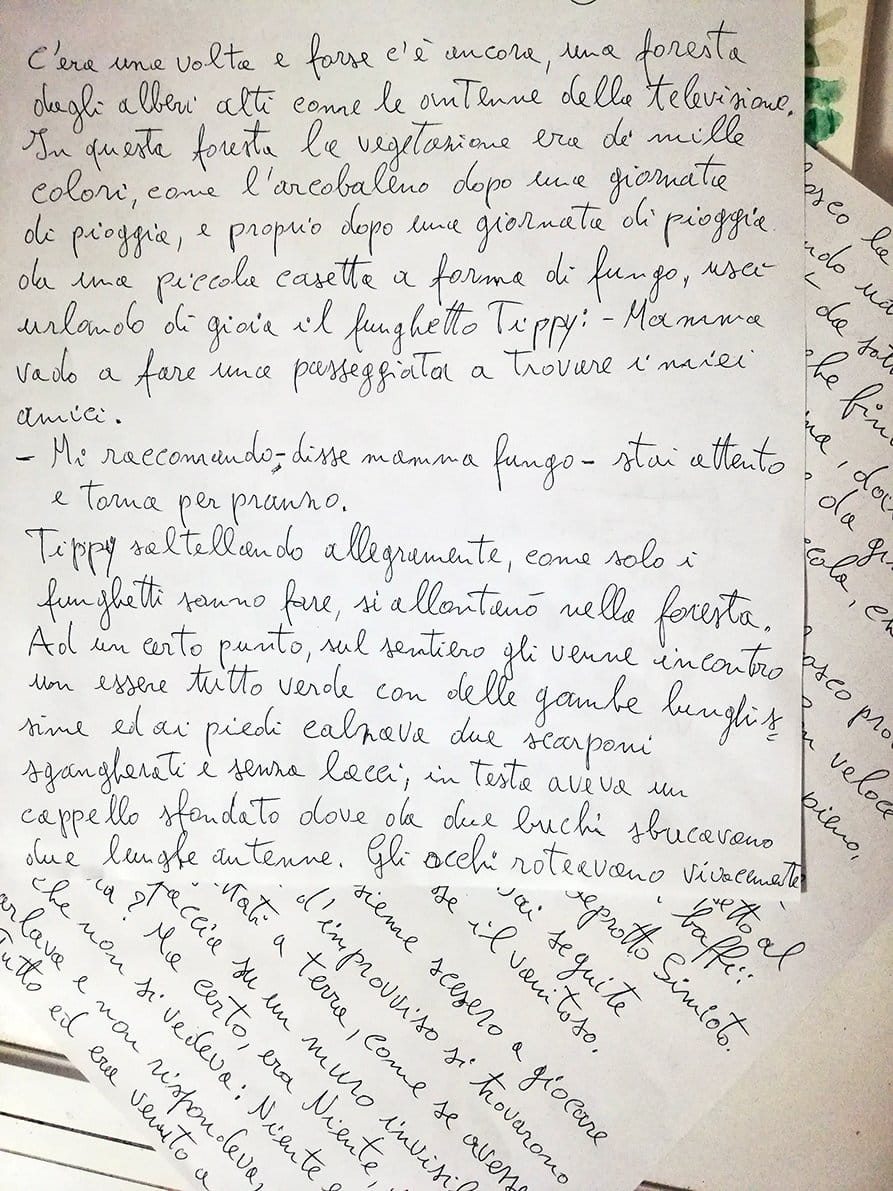 C'era una volta e forse c'è ancora, una foresta
dagli alberi alti come le antenne della televisione.
In questa foresta la vegetazione era de mille
colori, come l'arcobaleno dopo una giornata
di pioggia, e proprio dopo una giornata di pioggia
da una piccola casetta a forma di fungo, uscì
urlando di gioia il funghetto Tippy: - Mamma
vado a fare una passeggiata a trovare i miei
amici.
- Mi raccomando, - disse mamma fungo - stai attento
e torna per pranzo.
Tippy saltellando allegramente, come solo i
funghetti sanno fare, si allontanò nella foresta.
Ad un certo punto, sul sentiero gli venne incontro
un essere tutto verde con delle gambe lunghis=
sime ed ai piedi calzava due scarponi
sgangherati e senza lacci, in testa aveva un
cappello sfondato dove da due buchi sbucavano
due lunghe antenne. Gli occhi roteavano vivacemente
la
da
che
da
veloce
pieno,
al
baffi:
Simioto.
seguite
se il vanitoso.
scesero a giocare
d'improvviso si trovarono
a terra, come se avesse
su un muro
Ma certo, era Niente,
che non si vedeva: Niente
e non rispondeva,
ed era venuto a